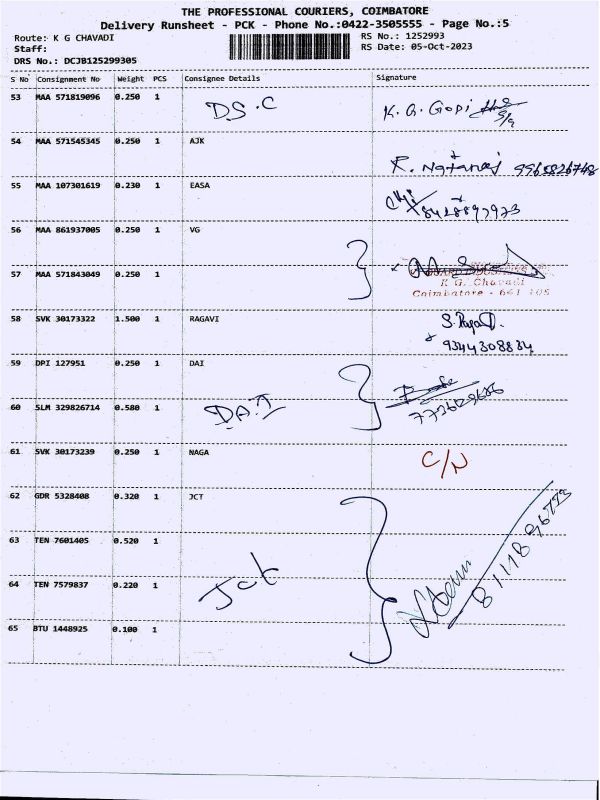 THE PROFESSIONAL COURIERS, COIMBATORE
Delivery Runsheet - PCK - Phone No.:0422-3505555 - Page No.:5
Route: K G CHAVADI RS No.: 1252993
Staff: RS Date: 05-Oct-2023
DRS No.: DCJB125299305
S No Consignment No Weight PCS Consignee Details Signature
53 MAA 571819096 0.250 1 DS.C K. G. Gopi
54 MAA 571545345 0.250 1 AJK
R. Natanaj 9965826748
55 MAA 107301619 0.230 1 EASA
8428897973
56 MAA 861937005 0.250 1 VG
57 MAA 571843049 0.250 1
K G. Chavadi
Coimbatore - 641 105
58 SVK 30173322 1.500 1 RAGAVI
9344308834
59 DPI 127951 0.250 1 DAI
60 SLM 329826714 0.580 1 DAI
61 SVK 30173239 0.250 1 NAGA C/N
62 GDR 5328408 0.320 1 JCT
63 TEN 7601405 0.520 1
64 TEN 7579837 0.220 1 Jct
65 BTU 1448925 0.100 1